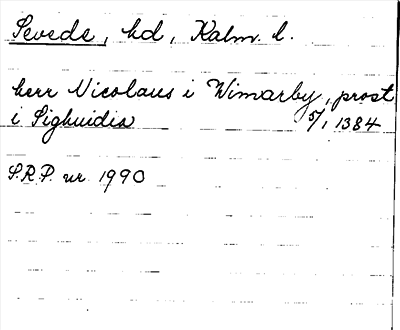 Sevede, hd, Kalm. l.
herr Nicolaus i Wimarby, prost
i Sighuidia 5/1 1384
S.R.P. nr 1990